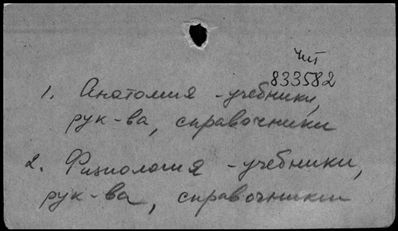 Чит
833582
1. Анатомия - учебники,
рук-ва, справочники
2. Физиология - учебники,
рук-ва, справочники